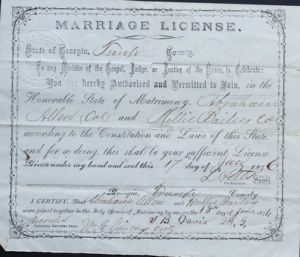 MARRIAGE LICENSE.
State of Georgia, Troup County.
To any Minister of the Gospel, Judge, or Justice of the Peace, to Celebrate:
You are hereby Authorized and Permitted to Join, in the
Honorable State of Matrimony, Abraham
Allen (Col) and Mollie
according to the Constitution and Laws of this State
and for so doing, this shall be your sufficient License
Given under my hand and seal this 17 day of 1876
Georgia, Troup County
I CERTIFY, That Abraham Allen and Mollie
were joined together in the Holy Bonds of Matrimony by me, on the 18 day of 1876
Recorded J B Davis